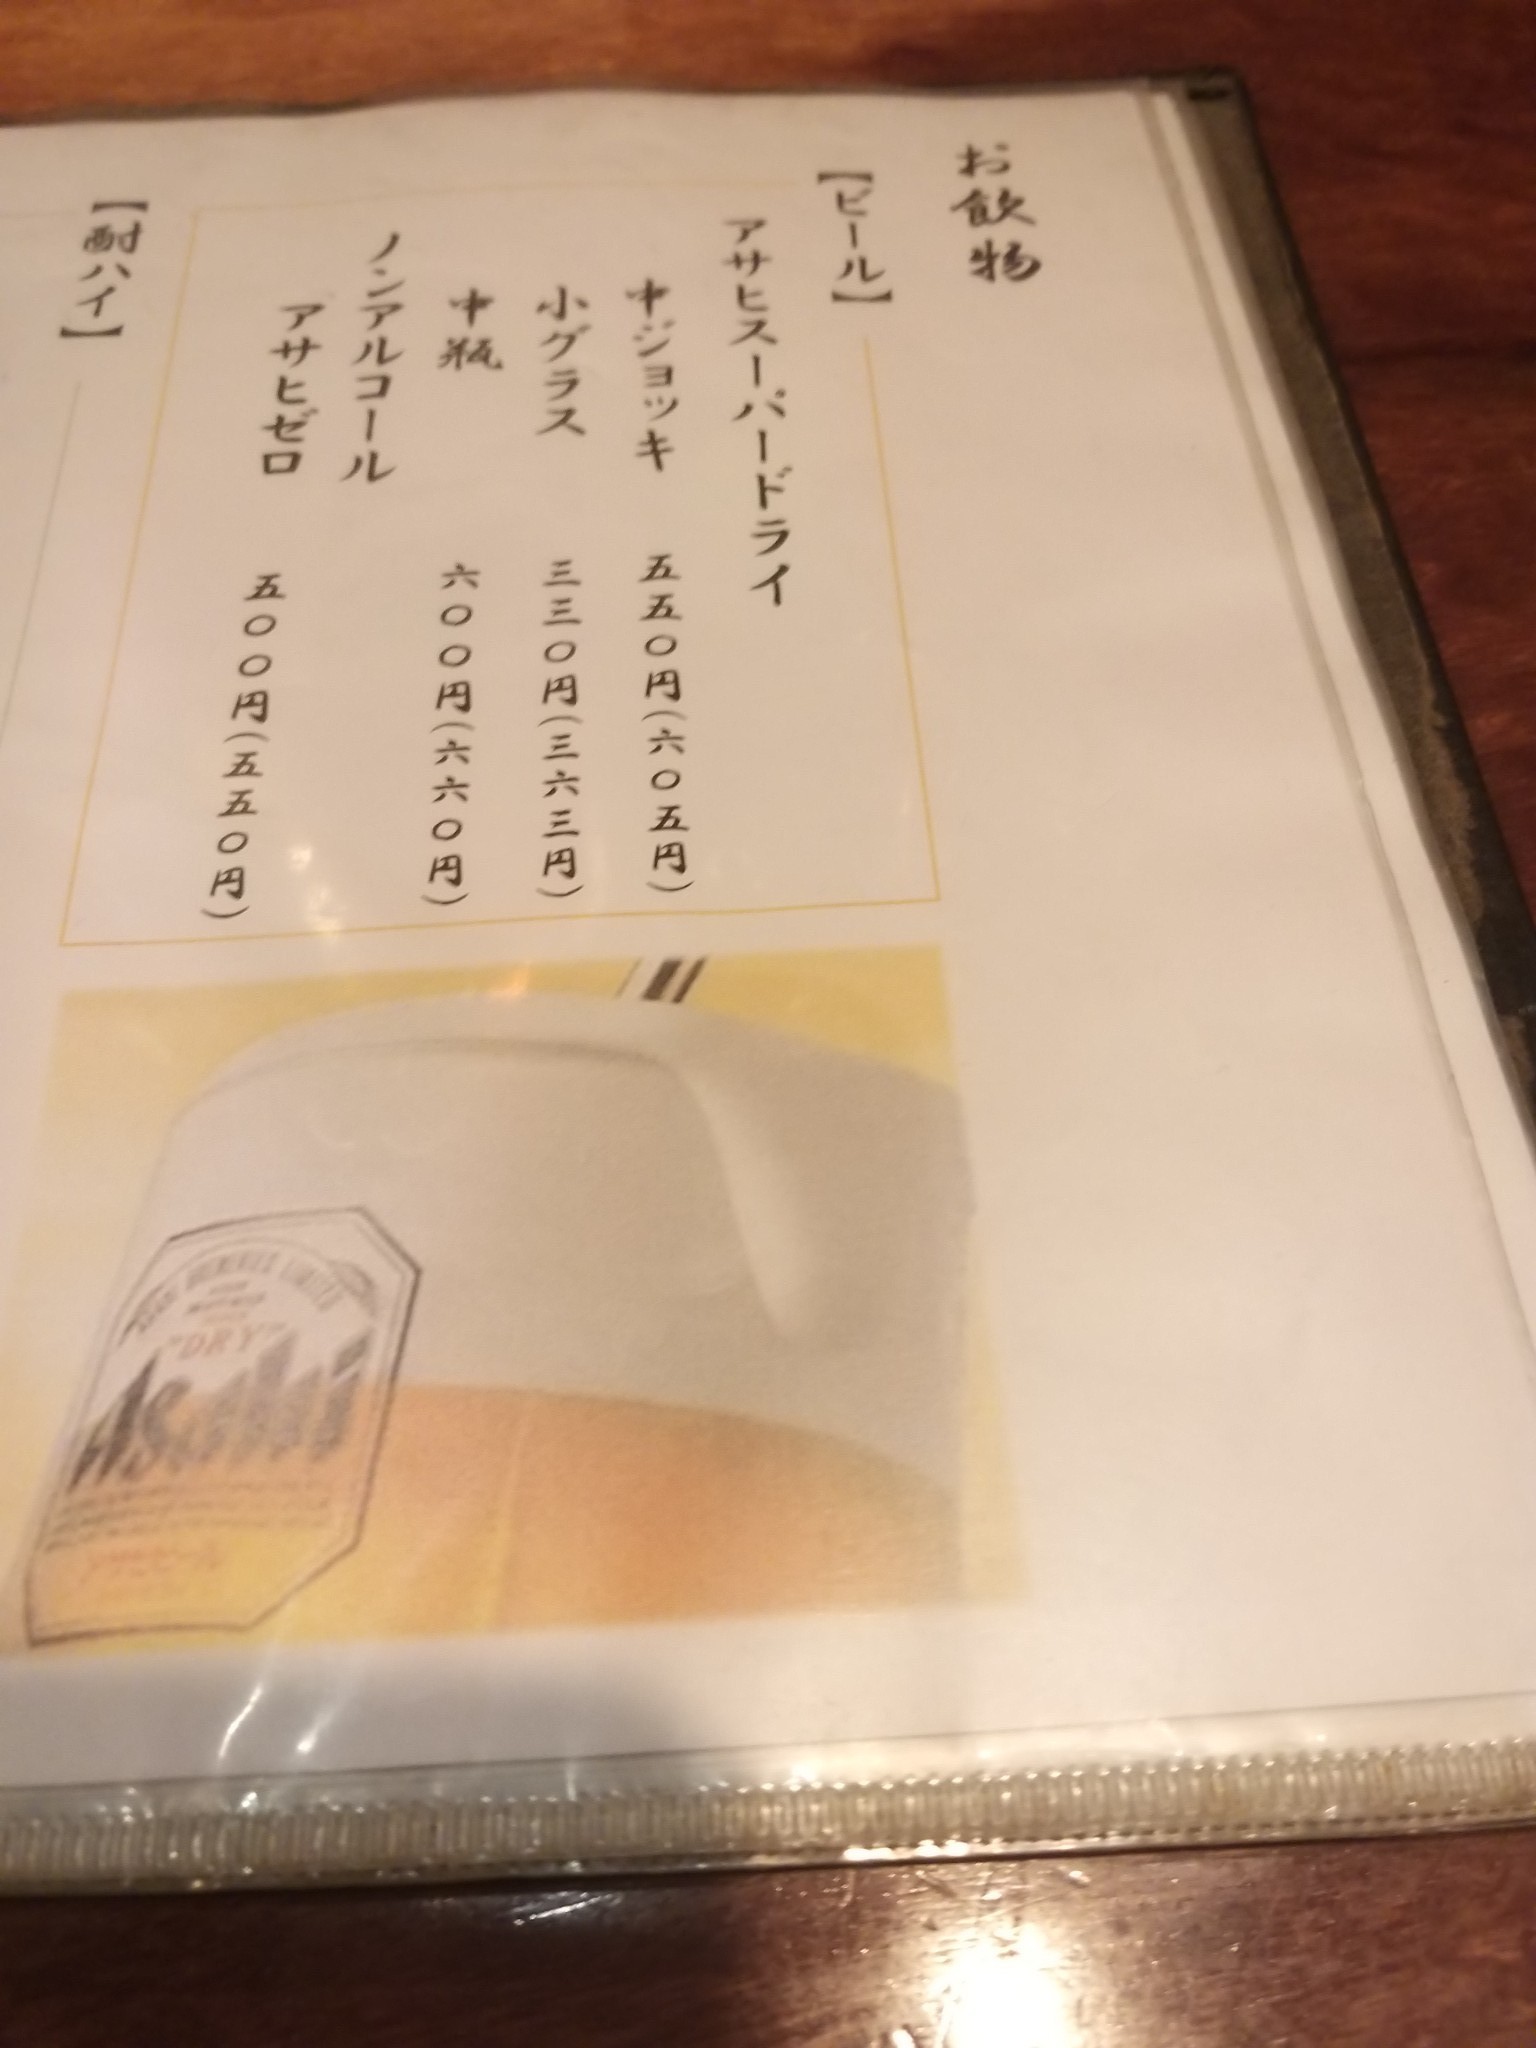 お飲物
【ビール】
アサヒスーパードライ
中ジョッキ 五五〇円(六〇五円)
小グラス 三三〇円(三六三円)
中瓶 六〇〇円(六六〇円)
ノンアルコール
アサヒゼロ 五〇〇円(五五〇円)
【酎ハイ】
ASAHI BREWERIES LIMITED
"DRY"
Asahi